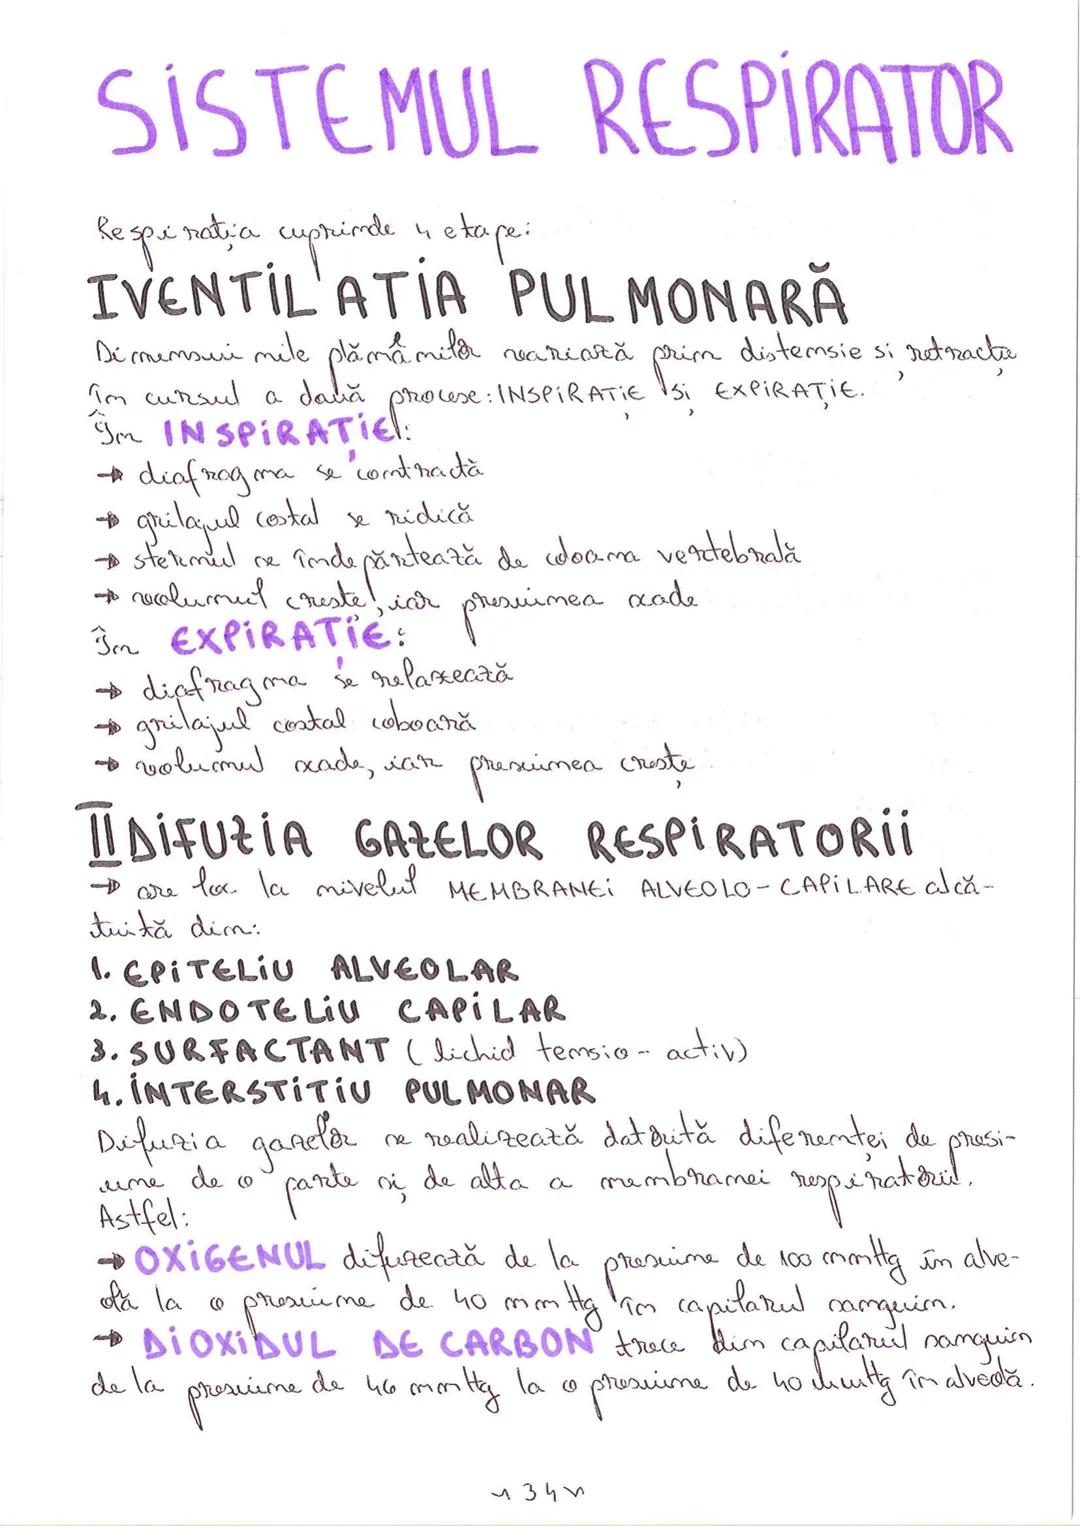 SISTEMUL RESPIRATOR
Respirația cuprinde 4 etape:
I VENTILAȚIA PULMONARĂ
Dimensiunile plămânilor variază prin distensie și retracție
în cursul a două procese: INSPIRAȚIE și EXPIRAȚIE.
În INSPIRAȚIE:
→ diafragma se contractă
→ grilajul costal se ridică
→ sternul se îndepărtează de coloana vertebrală
→ volumul crește, iar presiunea scade
În EXPIRAȚIE:
→ diafragma se relaxează
→ grilajul costal coboară
→ volumul scade, iar presiunea crește
II DIFUZIA GAZELOR RESPIRATORII
→ are loc la nivelul MEMBRANEI ALVEOLO-CAPILARE alcă-
tuită din:
1. EPITELIU ALVEOLAR
2. ENDOTELIU CAPILAR
3. SURFACTANT (lichid tensio-activ)
4. INTERSTITIU PULMONAR
Difuzia gazelor se realizează datorită diferenței de presi-
une de o parte și de alta a membranei respiratorii.
Astfel:
→ OXIGENUL difuzează de la presiune de 100 mmHg în alve-
olă la o presiune de 40 mmHg în capilarul sanguin.
→ DIOXIDUL DE CARBON trece din capilarul sanguin
de la presiune de 46 mmHg la o presiune de 40 mmHg în alveolă.
~34~